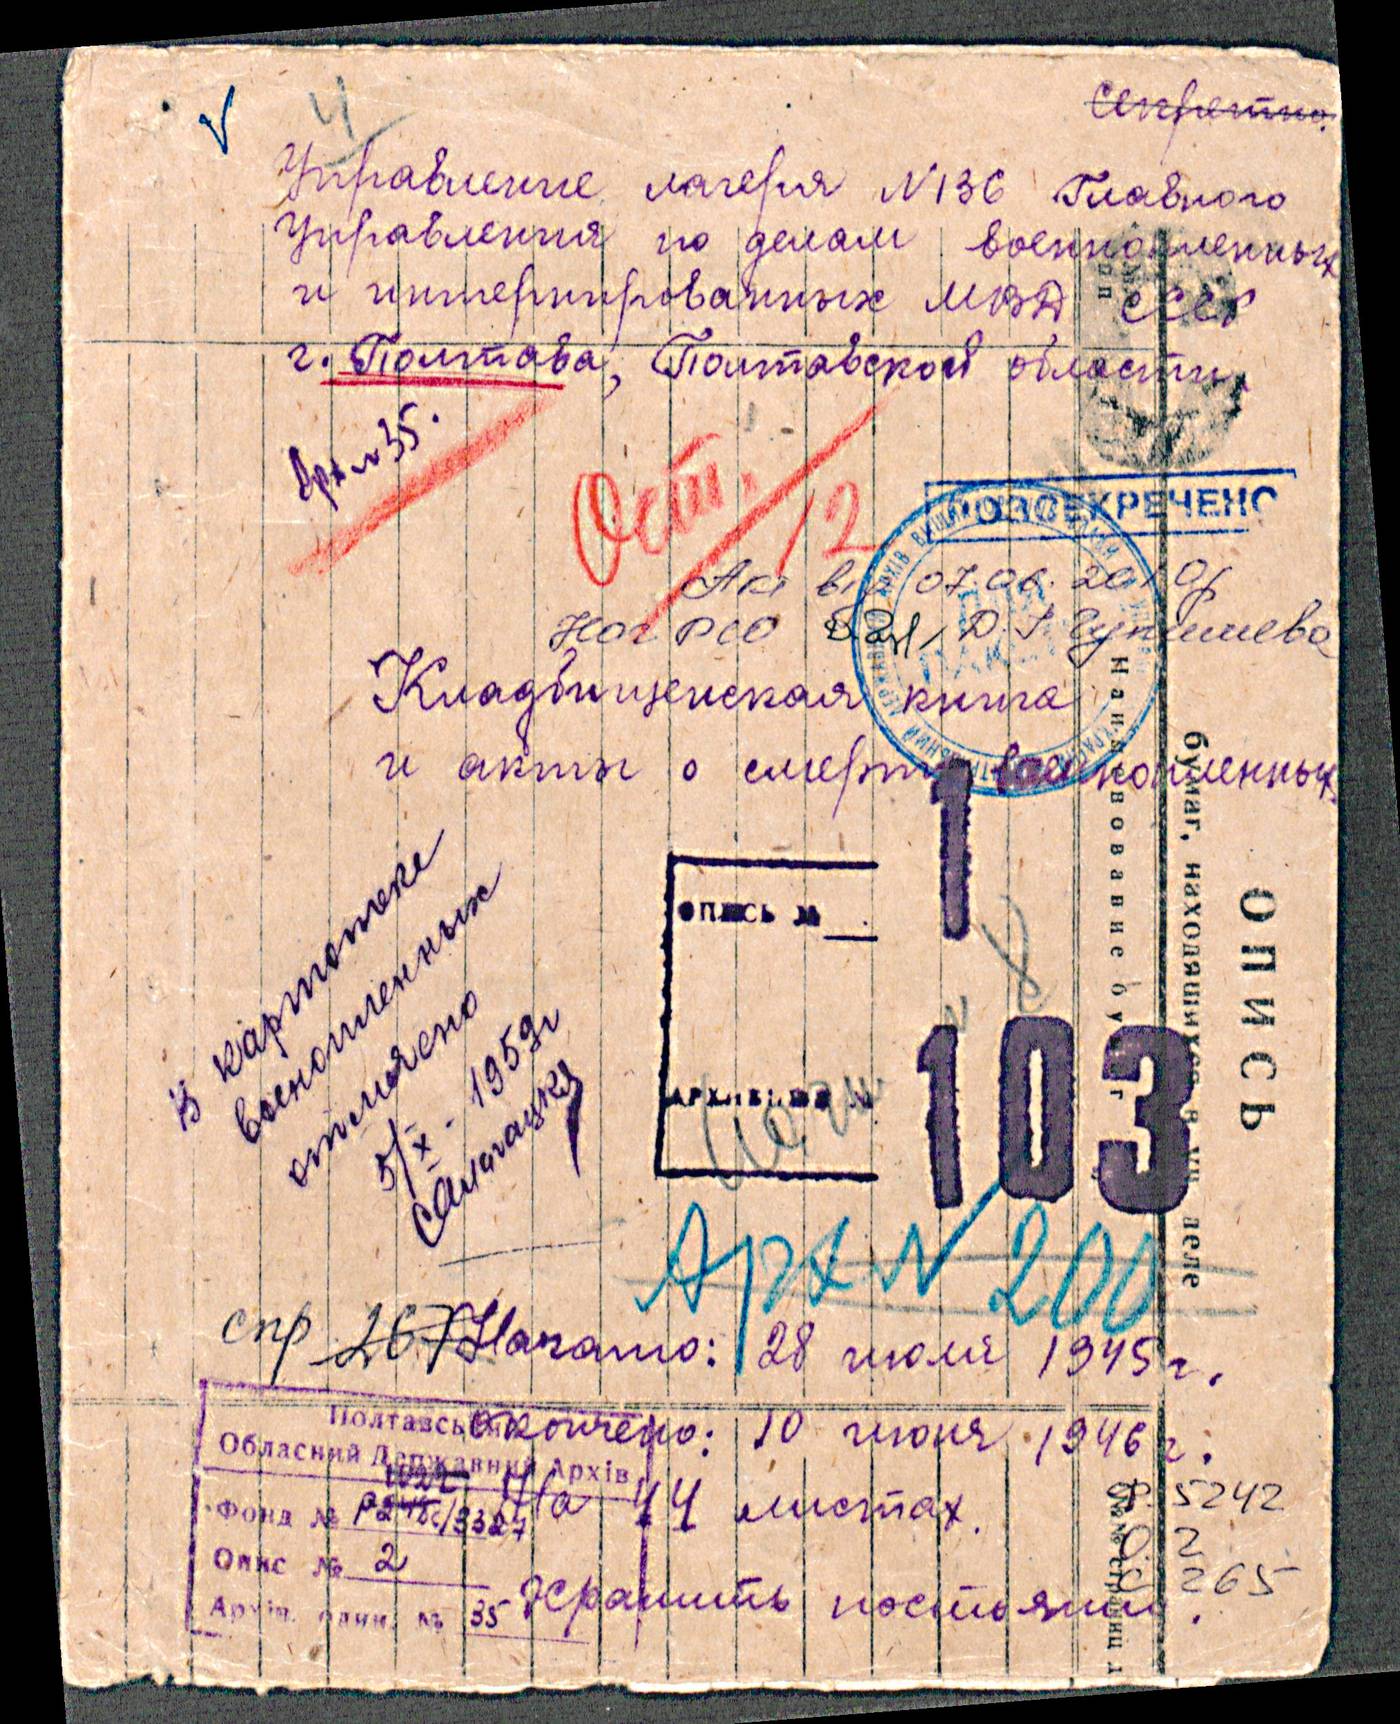 Секретно.
4
Управление лагеря N 136 Главного
Управления по делам военнопленных
и интернированных МВД СССР
г. Полтава, Полтавской области.
Арх N 35.
Ост. 12
РОЗСЕКРЕЧЕНО
Акт від 07.06. 2010р
Нач РСО Д.
Кладбищенская книга
и акты о смерти военнопленных
В картотеке
военнопленных
отмечено
5/X - 1959г
ОПИСЬ № 1
АРХИВНЫЙ № 103
Арх N 200
спр 267
Начато: 28 июля 1945 г.
окончено: 10 июня 1946 г.
На 44 листах.
Хранить постоянно.
Полтавський
Обласний Державний Архів
Фонд №
Опис № 2
Архів. один. № 35
ф. 5242
О 2
С 265
ОПИСЬ
бумаг, находящихся в деле
Наименование бумаг
№№ страниц